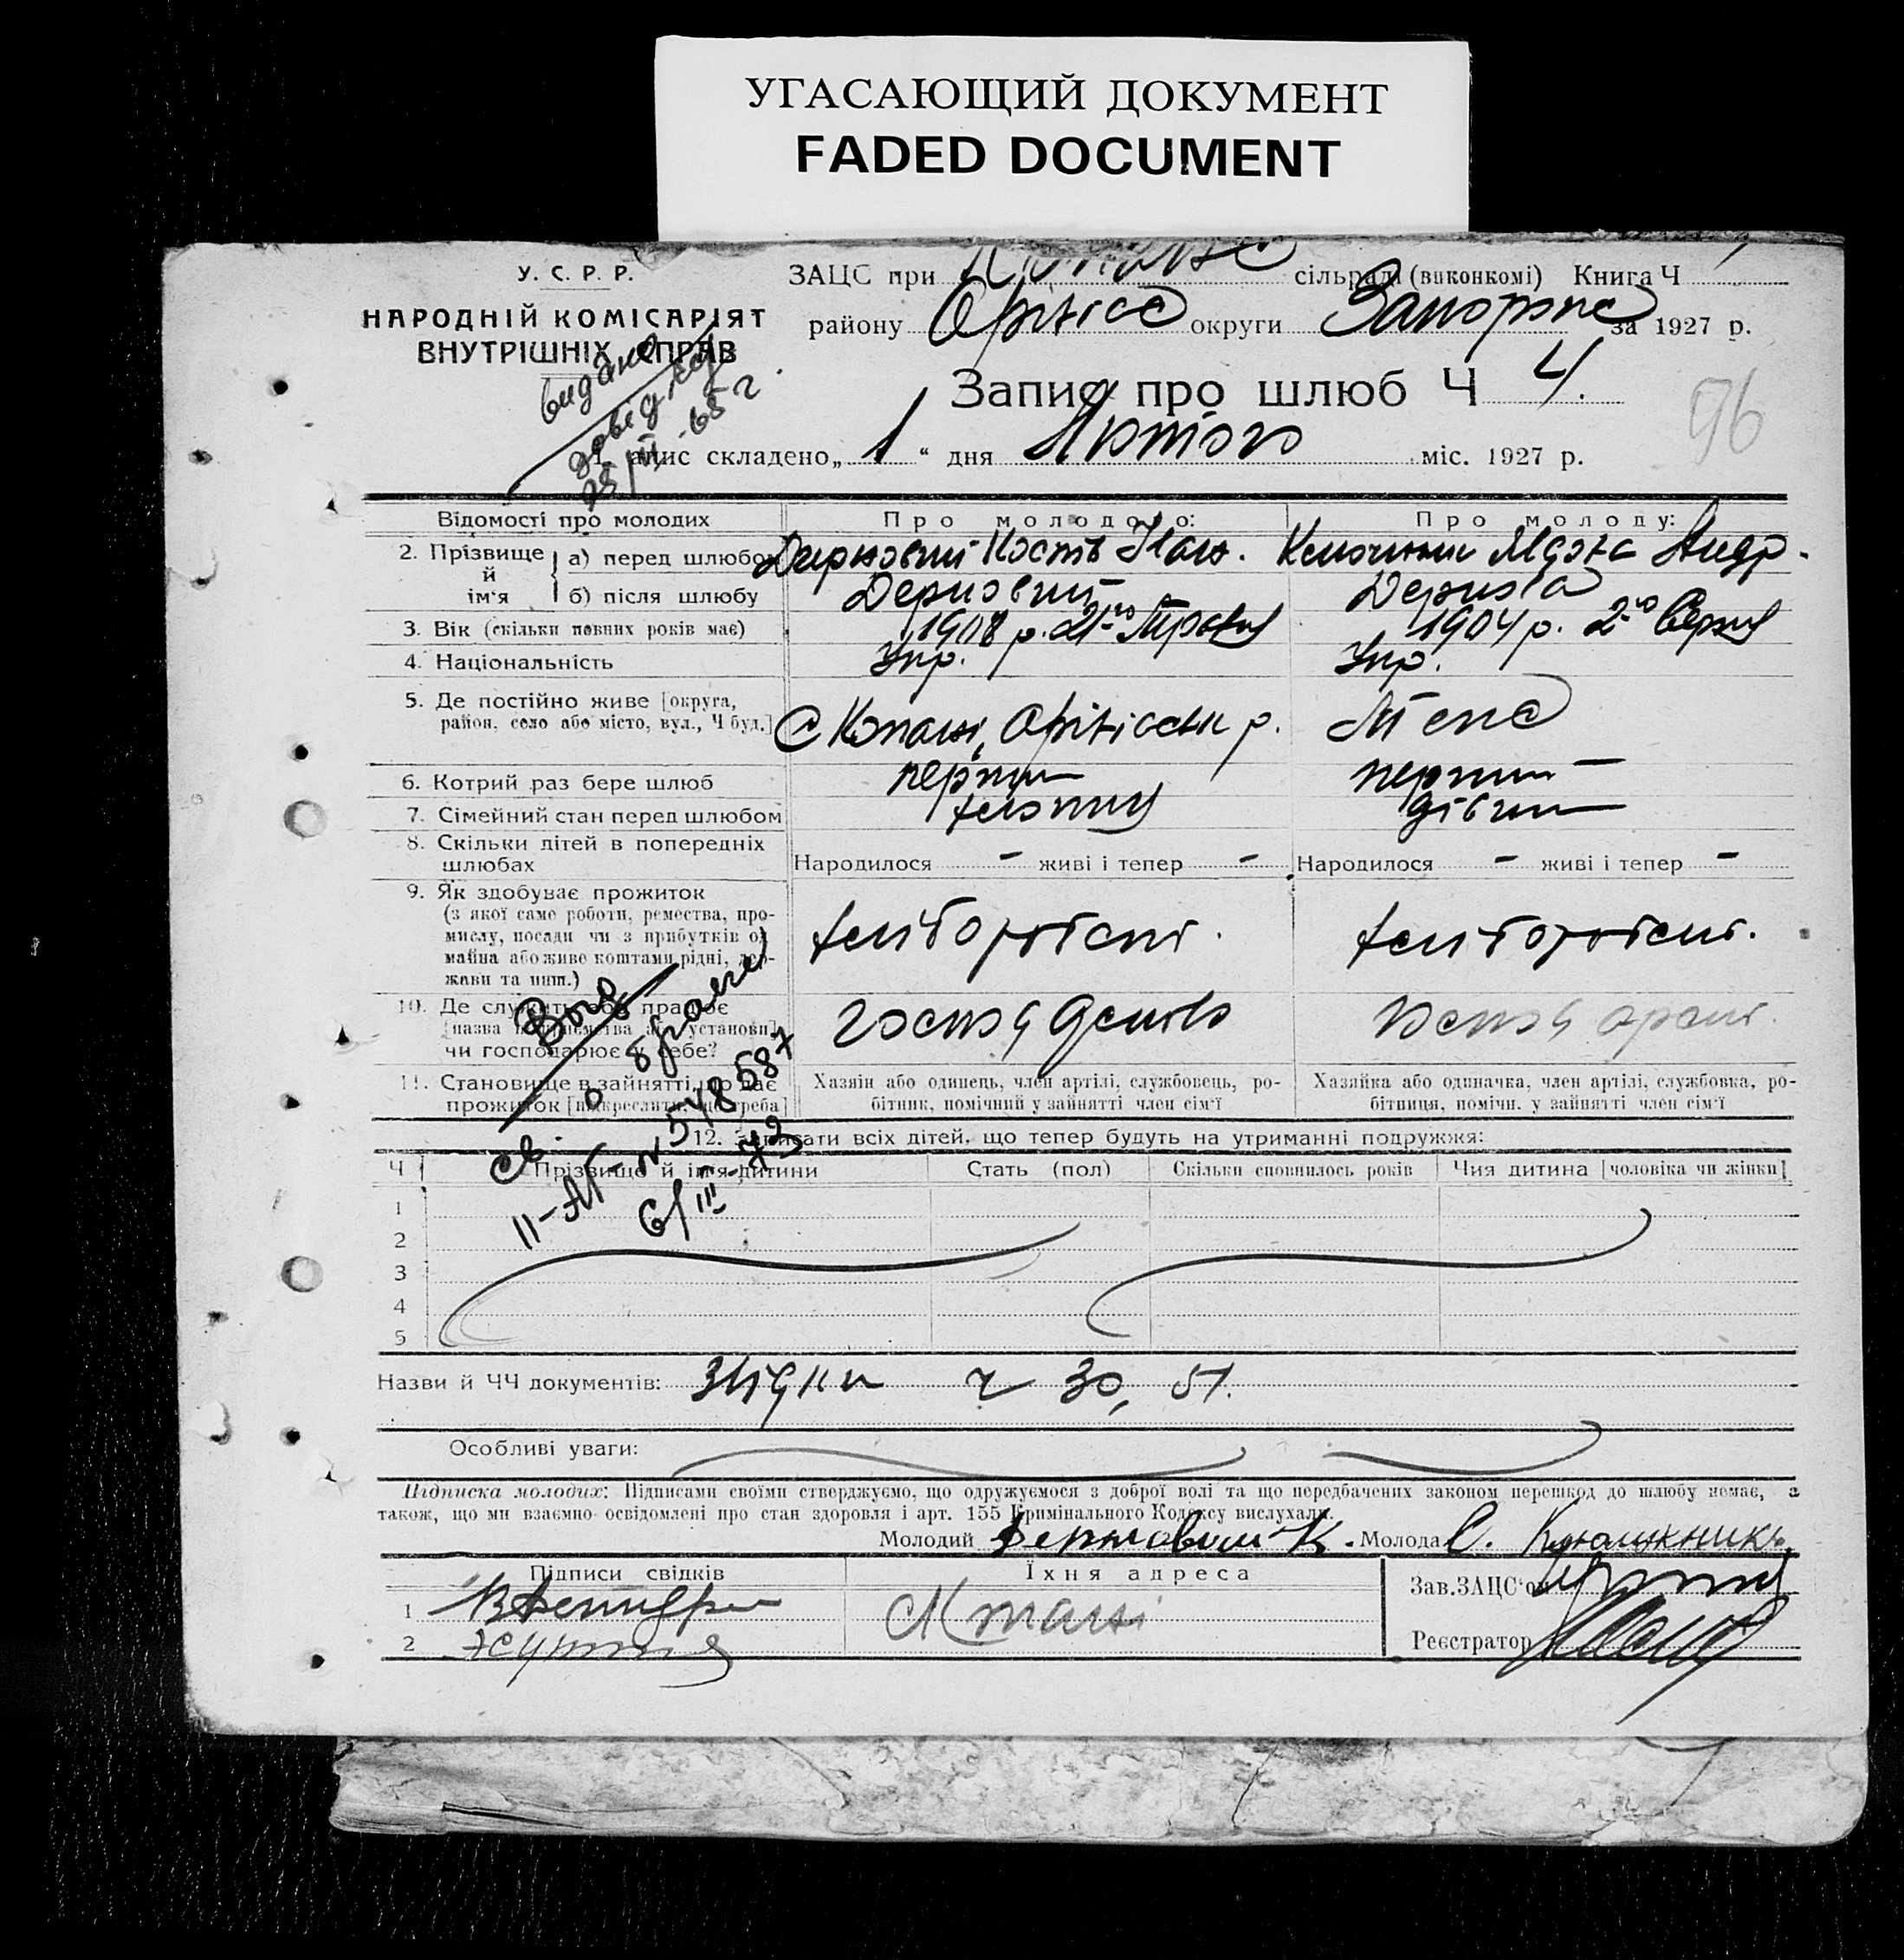 УГАСАЮЩИЙ ДОКУМЕНТ
FADED DOCUMENT
У. С. Р. Р.
НАРОДНІЙ КОМІСАРІЯТ
ВНУТРІШНІХ СПРАВ
ЗАЦС при сільраді (виконкомі) Книга Ч
району Оріхівс округи Запорізьк за 1927 р.
Запис про шлюб Ч 4.
96
видано
довідку
25/III-65 г.
1. Запис складено „1“ дня Лютого міс. 1927 р.
Відомості про молодих
Про молодого:
Про молоду:
2. Прізвище й ім'я
а) перед шлюбом
Кость Іван.
Андр.
б) після шлюбу
Дерновий
Дернова
3. Вік (скільки повних років має)
1908 р. 21-го Травня
1904 р. 2-го Серпня
4. Національність
Укр.
Укр.
5. Де постійно живе [округа,
район, село або місто, вул., Ч буд.]
с Копані, Оріхівськ р.
6. Котрий раз бере шлюб
перший
перший
7. Сімейний стан перед шлюбом
хлопець
дівчина
8. Скільки дітей в попередніх
шлюбах
Народилося - живі і тепер -
Народилося - живі і тепер -
9. Як здобуває прожиток
(з якої саме роботи, ремества, про-
мислу, посади чи з прибутків од
майна або живе коштами рідні, дер-
жави та инш.)
хліборобст.
хліборобст.
10. Де служить або працює
[назва підприємства або установи]
чи господарює у себе?
11. Становище в зайнятті, що дає
прожиток [підкреслити, що треба]
Хазяїн або одинець, член артілі, службовець, ро-
бітник, помічний у зайнятті член сім'ї
Хазяйка або одиначка, член артілі, службовка, ро-
бітниця, помічн. у зайнятті член сім'ї
св. о браке
II-АП № 548587
6/III-73
12. Записати всіх дітей, що тепер будуть на утриманні подружжя:
Ч
Прізвище й ім'я дитини
Стать (пол)
Скільки сповнилось років
Чия дитина [чоловіка чи жінки]
1
2
3
4
5
Назви й ЧЧ документів: ч 30, 51.
Особливі уваги:
Підписка молодих: Підписами своїми стверджуємо, що одружуємося з доброї волі та що передбачених законом перешкод до шлюбу немає, а
також, що ми взаємно освідомлені про стан здоровля і арт. 155 Кримінального Кодексу вислухали.
Молодий Дерновий К. Молода
Підписи свідків
Їхня адреса
Зав. ЗАЦС'ом
1
2
с Копані
Реєстратор